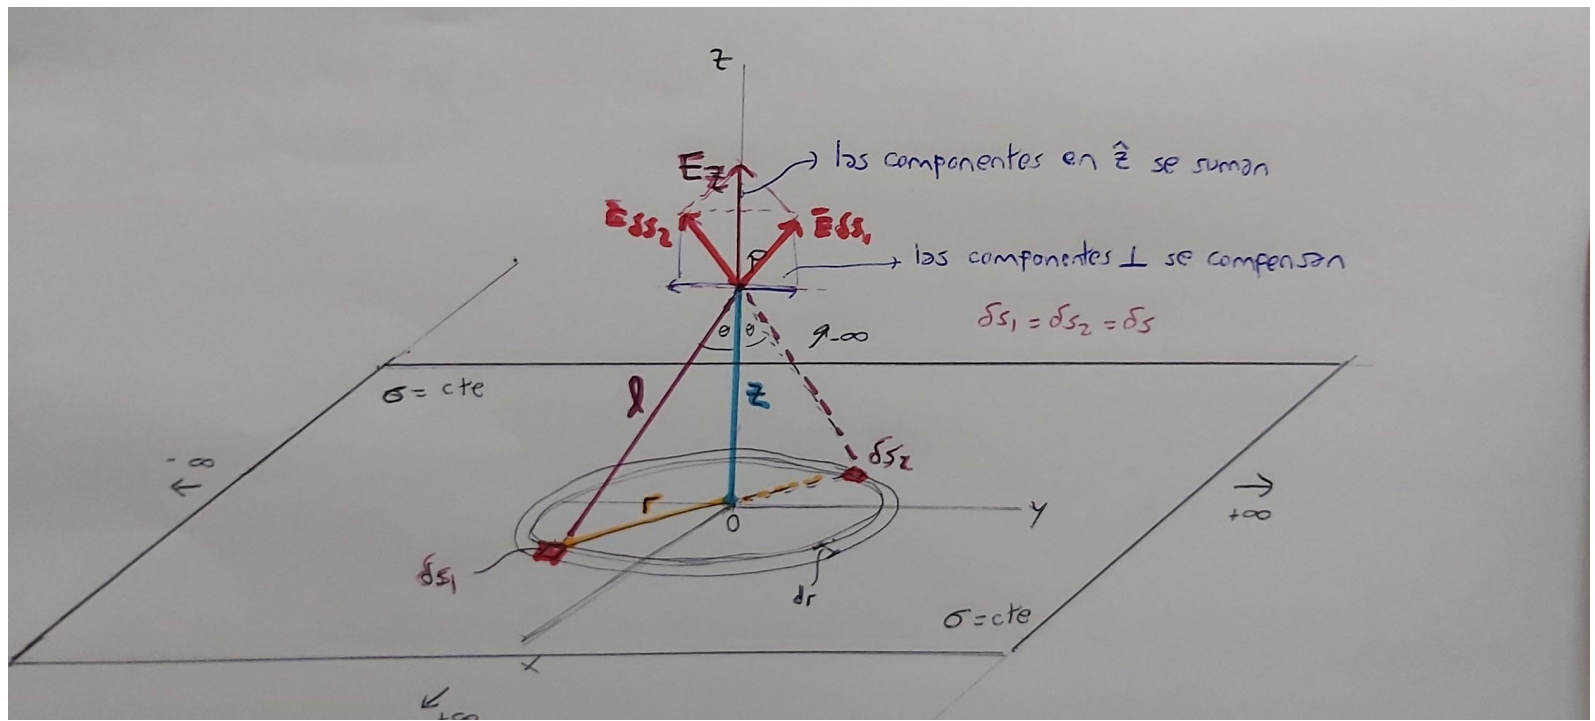 z
las componentes en ẑ se suman
E_z
Ē_δs₂
Ē_δs₁
las componentes ⊥ se compensan
δs₁ = δs₂ = δs
θ θ
σ = cte
l
z
-∞
←
δs₂
r
→
+∞
y
0
δs₁
dr
σ = cte
x
↙
+∞